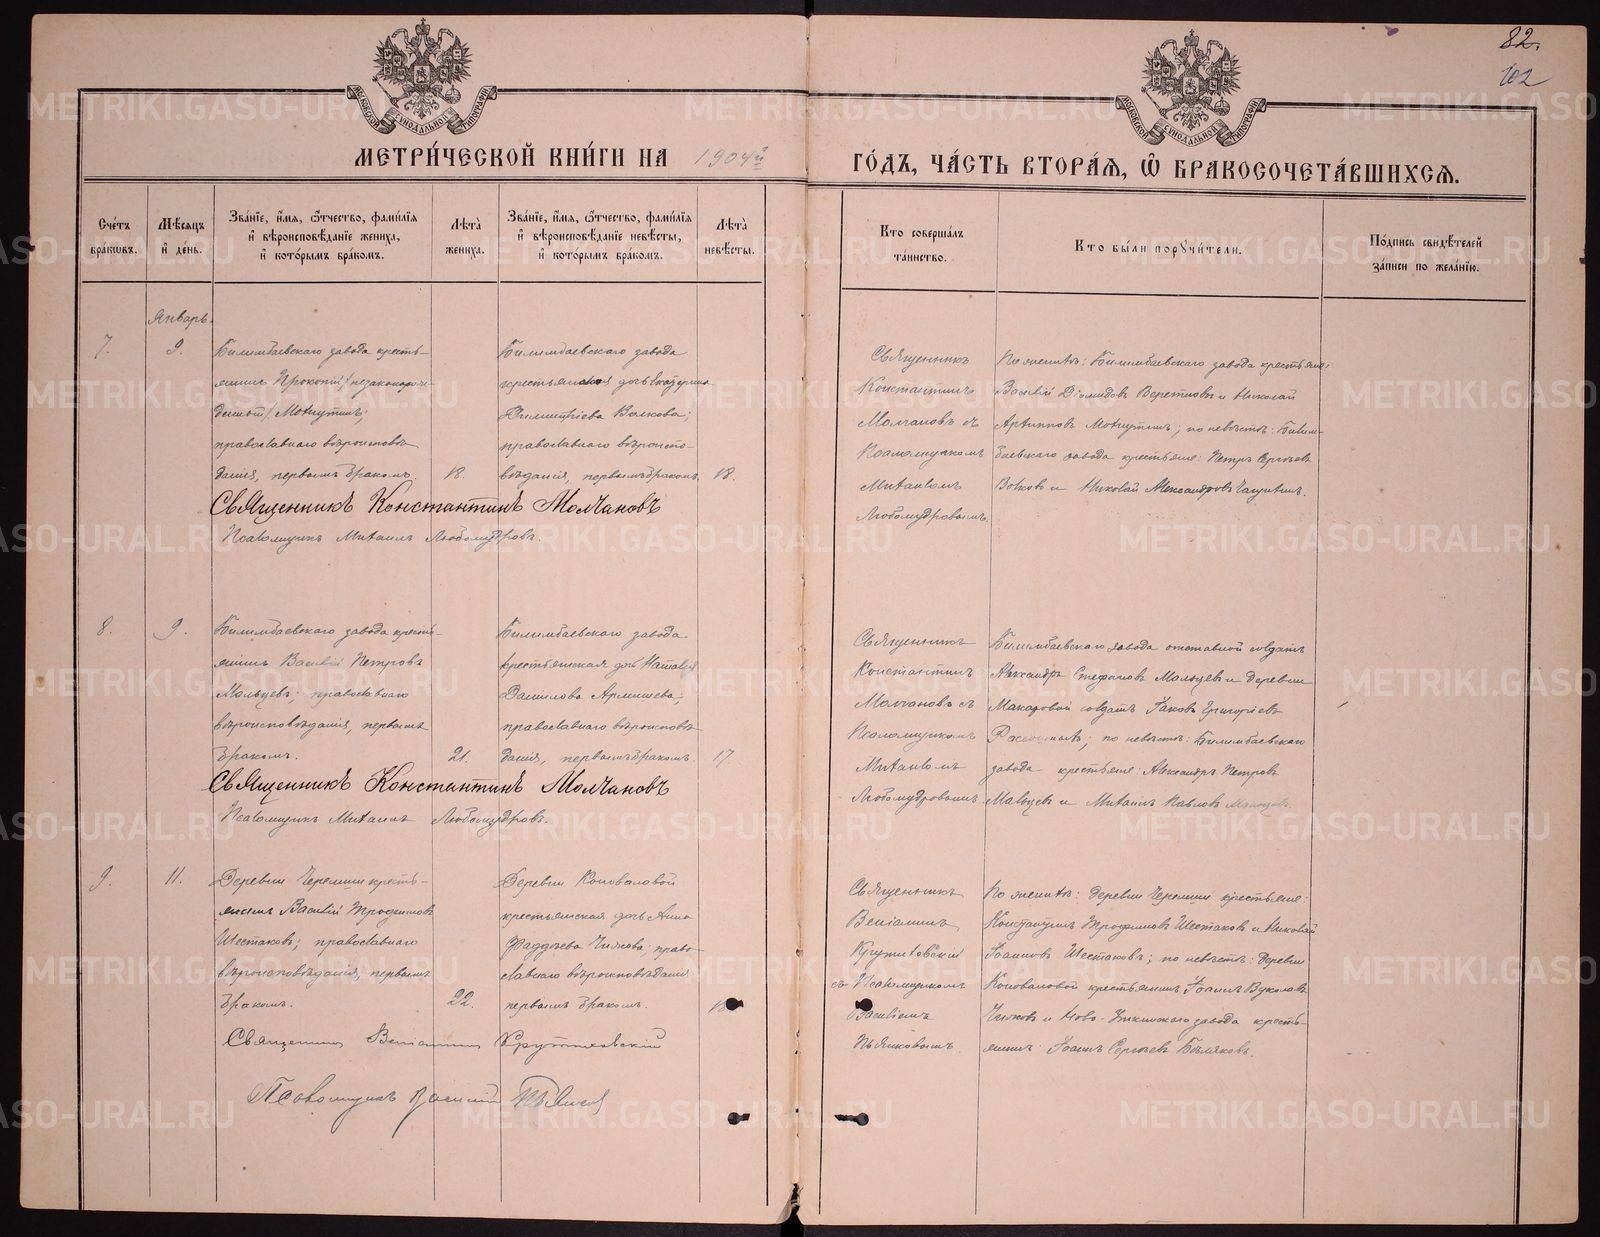 82.
102
МОСКОВСКОЙ СѴНОДАЛЬНОЙ ТИПОГРАФІИ
МОСКОВСКОЙ СѴНОДАЛЬНОЙ ТИПОГРАФІИ
МЕТРИ́ЧЕСКОЙ КНИ́ГИ НА 1904й ГО́ДЪ, ЧА́СТЬ ВТОРА́Я, Ѽ БРАКОСОЧЕТА́ВШИХСѦ.
Сче́тъ бра́кѡвъ.
Мѣ́сяцъ и҆ де́нь.
Зва́нїе, и҆́мя, ѻ҆́тчество, фами́лїя
и҆ вѣроисповѣ́данїе жениха̀,
и҆ кото́рымъ бра́комъ.
Лѣ́та жениха̀.
Зва́нїе, и҆́мя, ѻ҆́тчество, фами́лїя
и҆ вѣроисповѣ́данїе невѣ́сты,
и҆ кото́рымъ бра́комъ.
Лѣ́та невѣ́сты.
Кто соверша́лъ
та́инство.
Кто бы́ли поручи́тели.
По́дпись свидѣ́телей
за́писи по жела́нїю.
Январь.
7.
9.
Билимбаевскаго завода кресть-
янинъ Прокопій /незаконорож-
денный/ Мохнуткинъ;
православнаго вѣроисповѣ-
данія, первымъ бракомъ.
18.
Билимбаевскаго завода
крестьянская дочь Екатерина
Димитріева Волкова;
православнаго вѣроиспо-
вѣданія, первымъ бракомъ.
18.
Священникъ
Константинъ
Молчановъ съ
Псаломщикомъ
Михаиломъ
Любомудровымъ.
По женихѣ: Билимбаевскаго завода крестьяне:
Василій Діомидовъ и Николай
Мохнуткинъ; по невѣстѣ: Билим-
баевскаго завода крестьяне: Петръ Сергѣевъ
Волковъ и Николай Александровъ
Священникъ Константинъ Молчановъ
Псаломщикъ Михаилъ Любомудровъ.
8.
9.
Билимбаевскаго завода кресть-
янинъ Василій Петровъ
Мальцевъ; православнаго
вѣроисповѣданія, первымъ
бракомъ.
21.
Билимбаевскаго завода
крестьянская дочь Наталія
Данилова Армяшева;
православнаго вѣроисповѣ-
данія, первымъ бракомъ
17.
Священникъ
Константинъ
Молчановъ съ
Псаломщикомъ
Михаиломъ
Любомудровымъ
Билимбаевскаго завода отставной солдатъ
Александръ Стефановъ Мальцевъ и деревни
Макаровой солдатъ Іаковъ Григорьевъ
по невѣстѣ: Билимбаевскаго
завода крестьяне: Александръ Петровъ
Мальцевъ и Михаилъ Павловъ Мальцевъ.
Священникъ Константинъ Молчановъ
Псаломщикъ Михаилъ Любомудровъ.
9.
11.
Деревни Черемши кресть-
янинъ Василій Трофимовъ
Шестаковъ; православнаго
вѣроисповѣданія, первымъ
бракомъ.
22.
Деревни Коноваловой
крестьянская дочь Анна
Фаддѣева Чижова; право-
славнаго вѣроисповѣданія
первымъ бракомъ.
18
Священникъ
Веніаминъ
Крутиховскій
съ Псаломщикомъ
Василіемъ
Пьянковымъ.
По женихѣ: деревни Черемши крестьяне:
Константинъ Трофимовъ Шестаковъ и Николай
Іоанновъ Шестаковъ; по невѣстѣ: деревни
Коноваловой крестьянинъ Іоаннъ Вуколовъ
Чижовъ и Ново-Уткинскаго завода кресть-
янинъ Іоаннъ Сергѣевъ
Священникъ Веніаминъ Крутиховскій
Псаломщикъ Василій Пьянков
METRIKI.GASO-URAL.RU